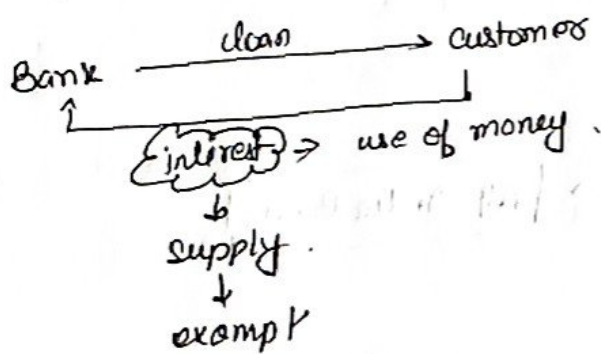 loan
Bank → customer
interest → use of money.
supply.
exempt